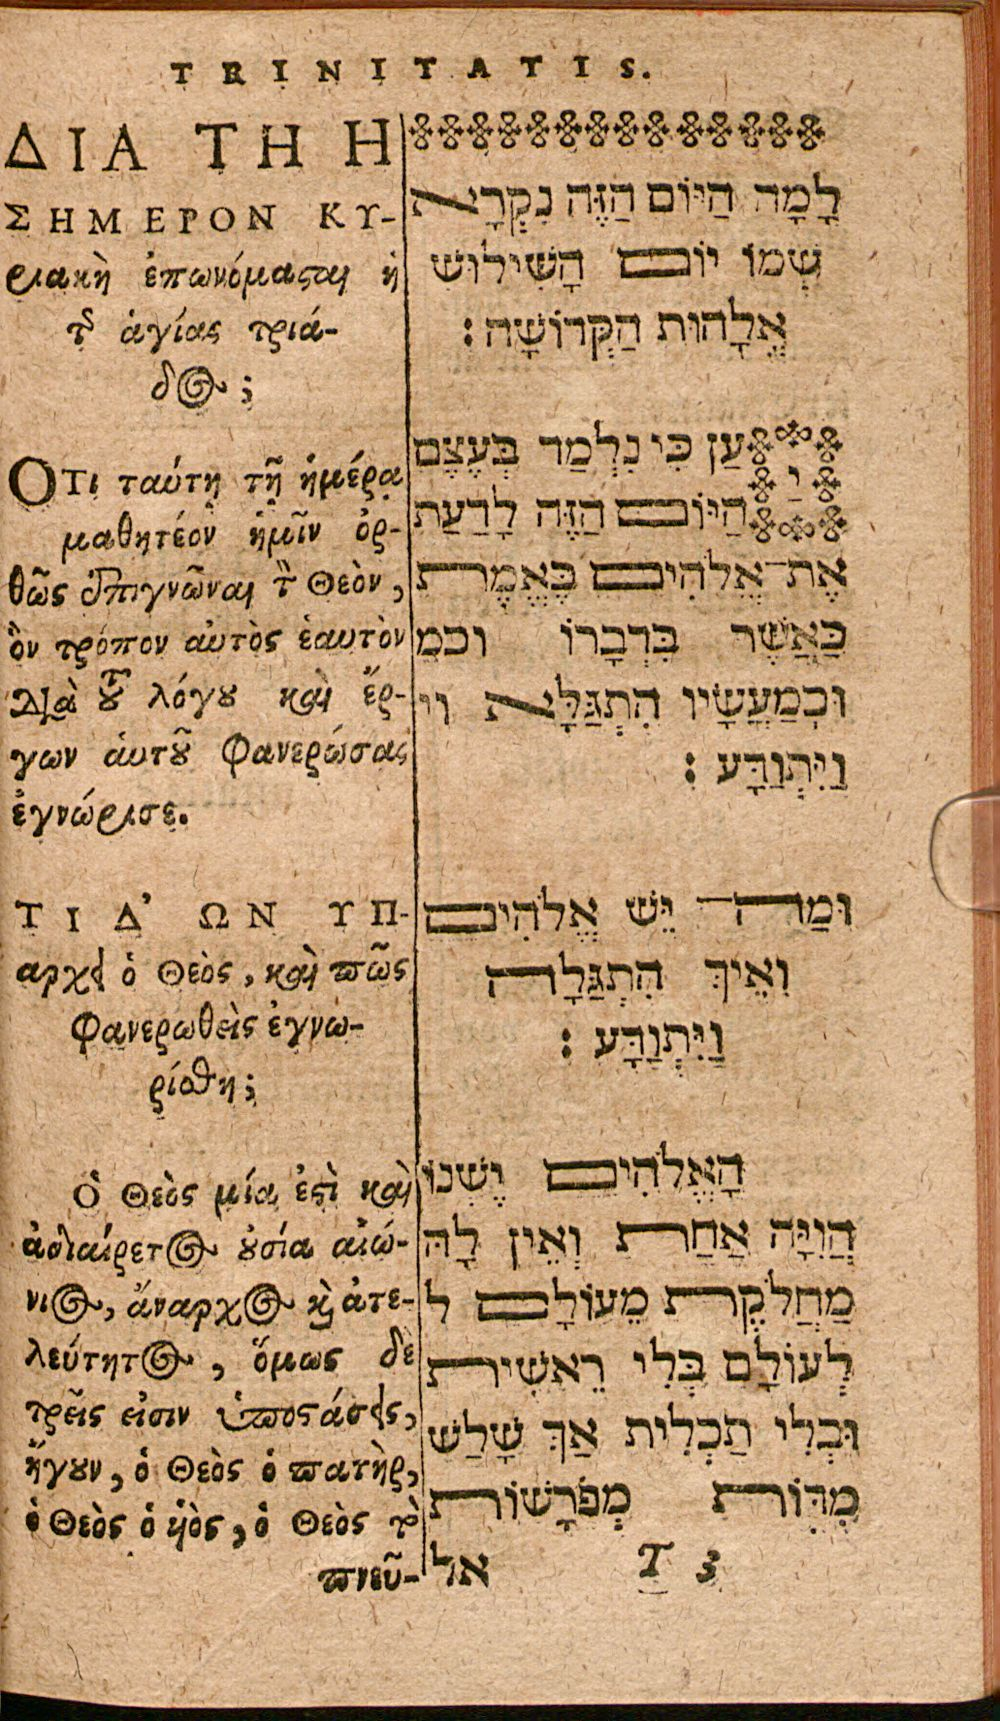 TRINITATIS.
ΔΙΑ ΤΗ Η
ΣΗΜΕΡΟΝ ΚΥ-
ριακὴ ἐπωνόμαςαι ἡ
τ͂ ἁγίας τριά-
δος;
ΟΤι ταύτῃ τῇ ἡμέρᾳ
μαθητέον ἡμῖν ὀρ-
θῶς ἐπιγνῶναι τ̀ Θεὸν,
ὃν τρόπον αὐτὸς ἑαυτὸν
Διὰ τȣ λόγȣ καὶ ἔρ-
γων ἁυτȣ͂ φανερώσας
ἐγνώρισε.
ΤΙ Δ' ΩΝ ΥΠ-
αρχει ὁ Θεὸς, καὶ πῶς
φανερωθεὶς ἐγνω-
ρίσθη;
Ὁ Θεὸς μία ἐςὶ καὶ
ἀδιαίρετος ȣσία αἰώ-
νιος, ἄναρχος κ̀ ἀτε-
λεύτητος, ὅμως δὲ
τρεῖς εἰσιν ὑποςάσεις,
ἤγȣν, ὁ Θεὸς ὁ πατὴρ,
ὁ Θεὸς ὁ ὑὸς, ὁ Θεὸς τὸ
πνεῦ-
לָמָה הַיּוֹם הַזֶּה נִקְרָא
שְׁמוֹ יוֹם הָשִׁילוּשׁ
אֱלָהוּת הַקְּרוֹשָׁה:
יַעַן כִּי נִלְמַד בְּעֶצֶם
הַיּוֹם הַזֶּה לָדַעַת
אֶת־אֱלֹהִים בֶּאֱמֶת
כַּאֲשֶׁר בִּדְבָרוֹ וכמ
וּכְמַעֲשָׂיו הִתְגַּלָּא וי
וַיִּתְוַדָּע:
וּמַה־ יֵּשׁ אֱלֹהִים
וְאֵיךְ הִתְגַּלָּה
וַיִּתְוַדָּע:
הָאֱלֹהִים יֶשְׁנוֹ
הֲוִיָּה אַחַת וְאֵין לָהּ
מַחֲלֹקֶת מֵעוֹלָם ל
לְעוֹלָם בְּלִי רֵאשִׁית
וּבְלִי תַכְלִית אַךְ שָׁלַשׁ
מִדּוֹת מְפֹרָשׁוֹת
אל
T 3